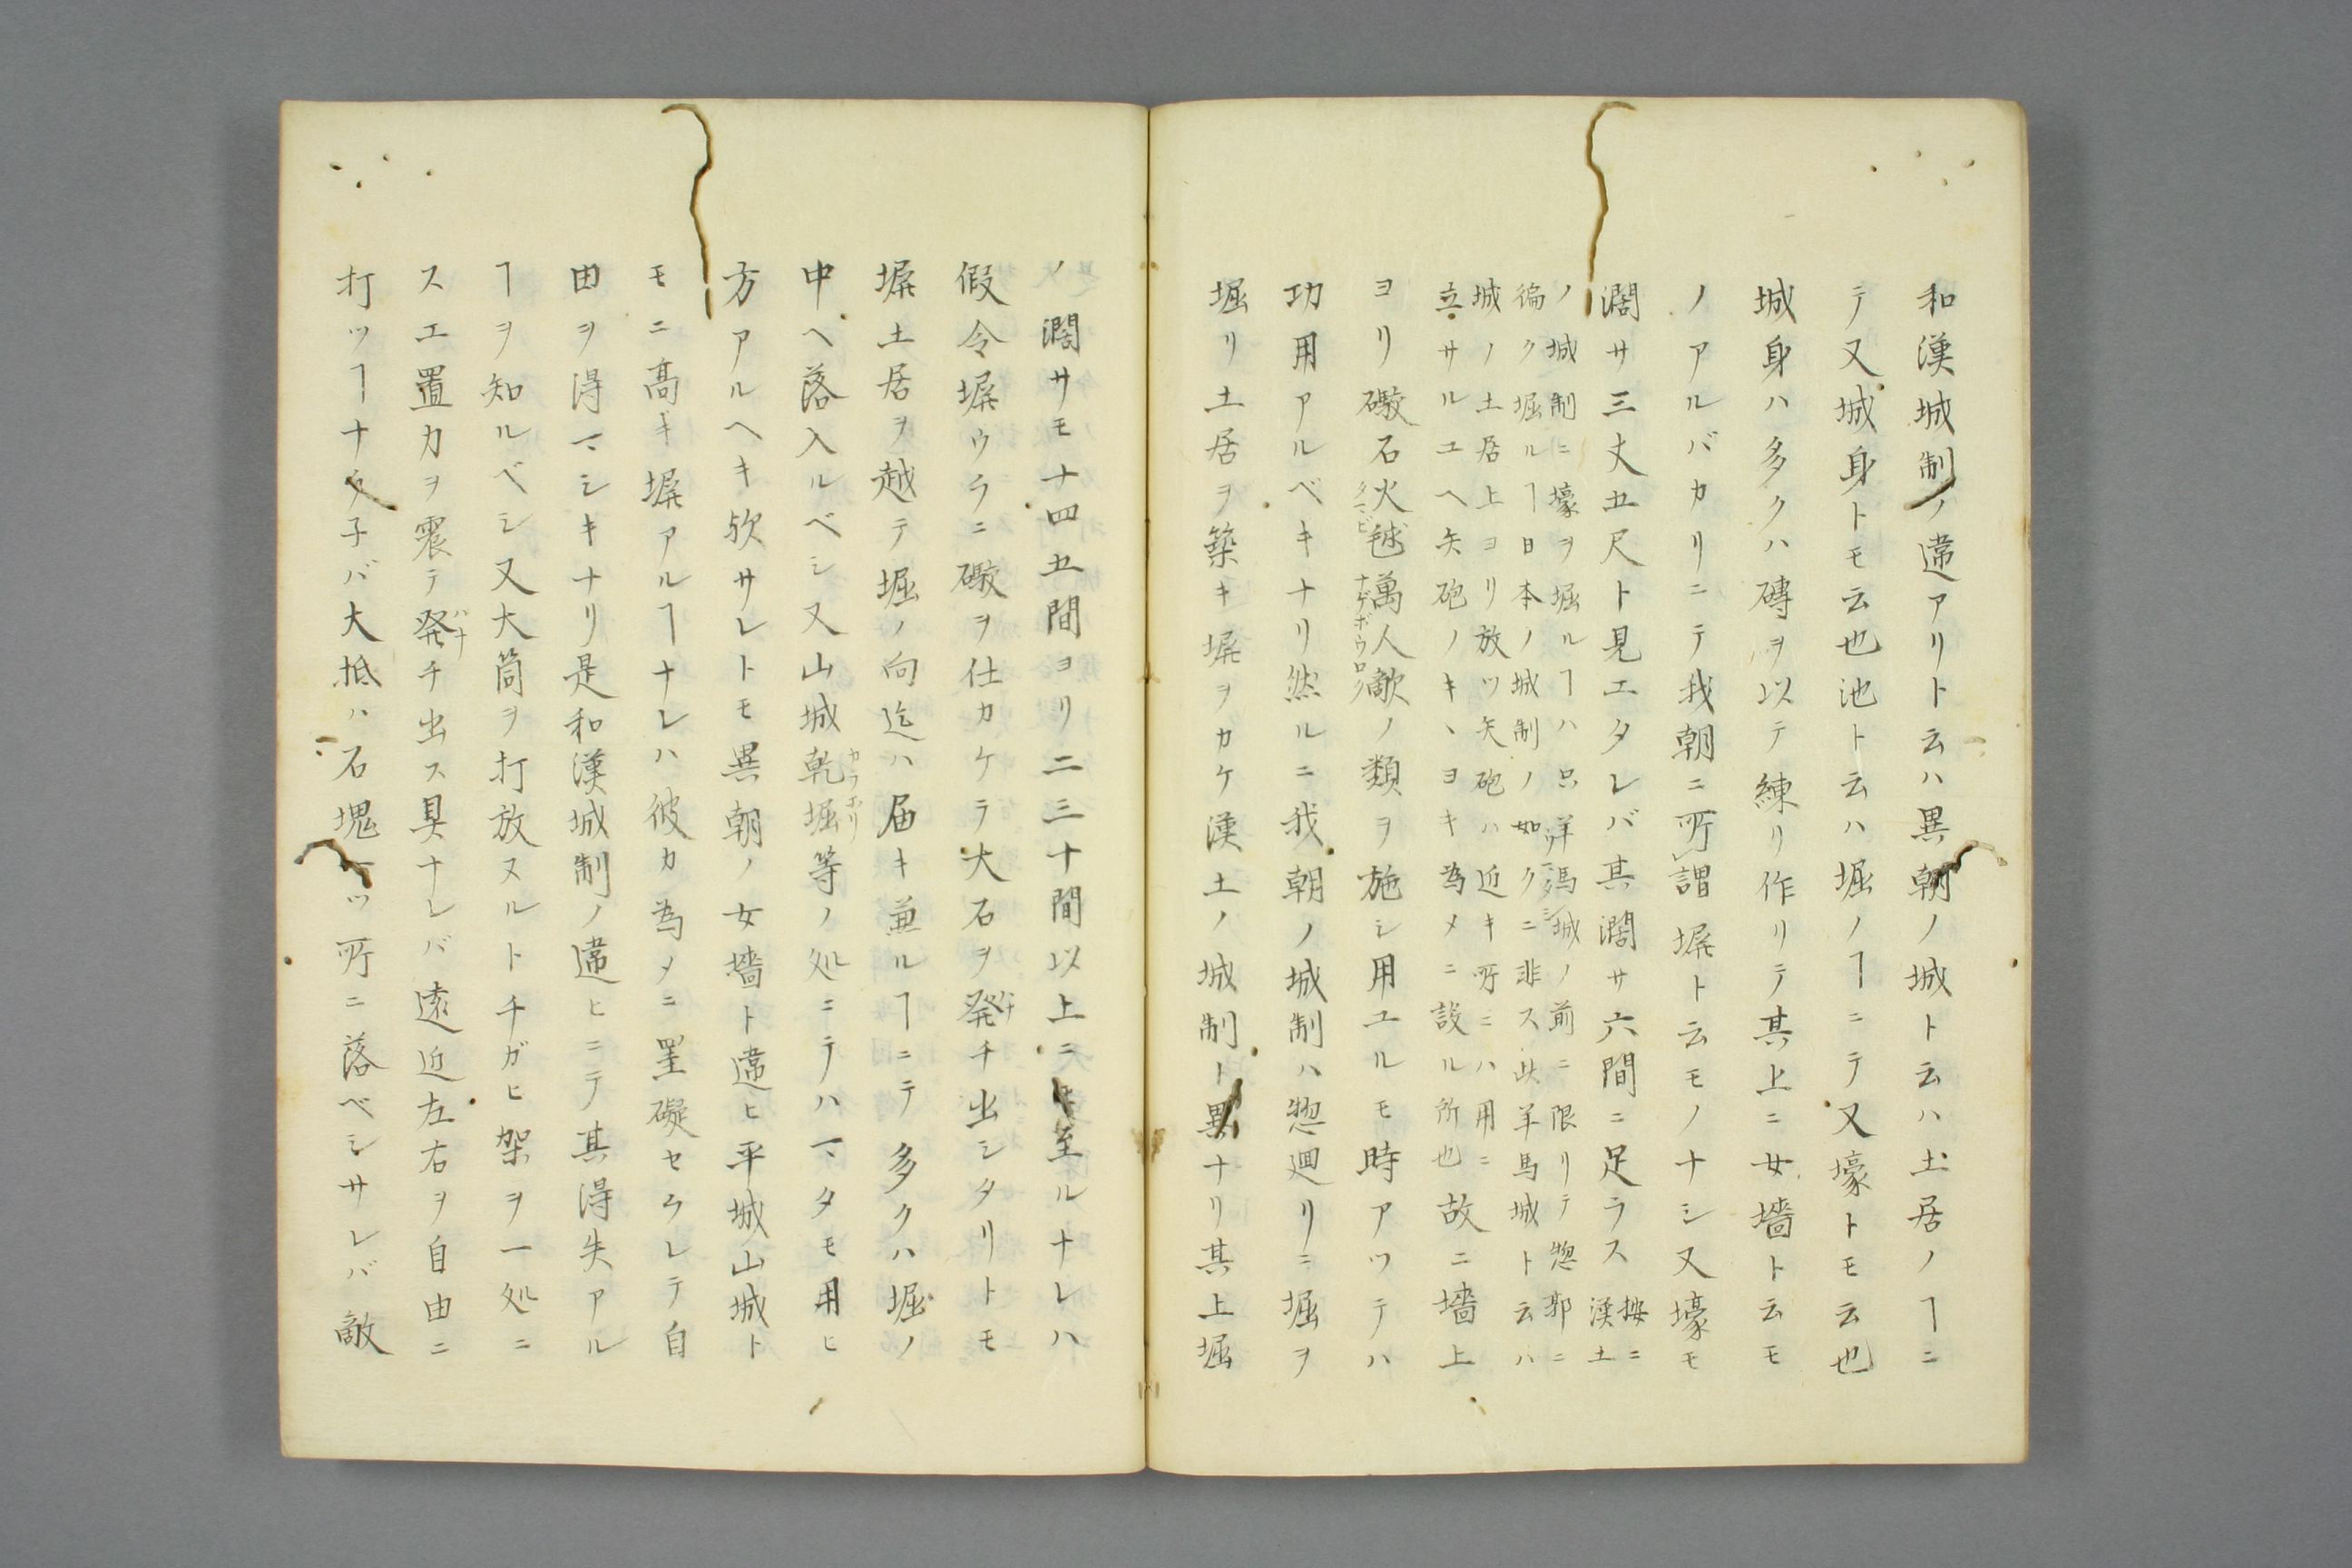 和漢城制ノ違アリト云ハ異朝ノ城ト云ハ土居ノヿニ
テ又城身トモ云也池ト云ハ堀ノヿニテ又壕トモ云也
城身ハ多クハ磚ヲ以テ練リ作リテ其上ニ女墻ト云モ
ノアルバカリニテ我朝ニ所謂塀ト云モノナシ又壕モ
濶サ三丈五尺ト見エタレバ其濶サ六間ニ足ラス
按ニ
漢土
ノ城制ニ壕ヲ堀ルヿハ只羊馬城ノ前ニ限リテ惣郭ニ
徧ク堀ルヿ日本ノ城制ノ如クニ非ス此羊馬城ト云ハ
城ノ土居上ヨリ放ツ矢砲ハ近キ所ニハ用ニ
立サルユヘ矢砲ノキヽヨキ為メニ設ル所也
故ニ墻上
ヨリ礮石火毬萬人敵ノ類ヲ施シ用ユルモ時アツテハ
功用アルベキナリ然ルニ我朝ノ城制ハ惣廻リニ堀ヲ
堀リ土居ヲ築キ塀ヲカケ漢土ノ城制ト異ナリ其上堀
ノ濶サモ十四五間ヨリ二三十間以上ニモ至ルナレハ
假令塀ウラニ礮ヲ仕カケテ大石ヲ発チ出シタリトモ
塀土居ヲ越テ堀ノ向迄ハ届キ兼ルヿニテ多クハ堀ノ
中ヘ落入ルベシ又山城乾堀等ノ処ニテハマタモ用ヒ
方アルヘキ歟サレトモ異朝ノ女墻ト違ヒ平城山城ト
モニ高キ塀アルヿナレハ彼カ為メニ罣礙セラレテ自
由ヲ得マシキナリ是和漢城制ノ違ヒニテ其得失アル
ヿヲ知ルベシ又大筒ヲ打放スルトチガヒ架ヲ一処ニ
スエ置力ヲ震テ発チ出ス具ナレバ遠近左右ヲ自由ニ
打ツヿナラ子バ大抵ハ石塊一ツ所ニ落ベシサレバ敵